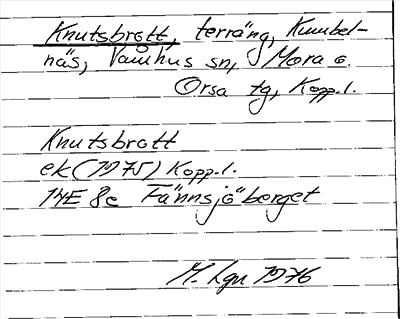 Knutsbrott, terräng, Kumbel-
näs, Våmhus sn, Mora o.
Orsa tg, Kopp.l.
Knutsbrott
ek (1975) Kopp.l.
14E 8c Fännsjöberget
M. Lgn 1976